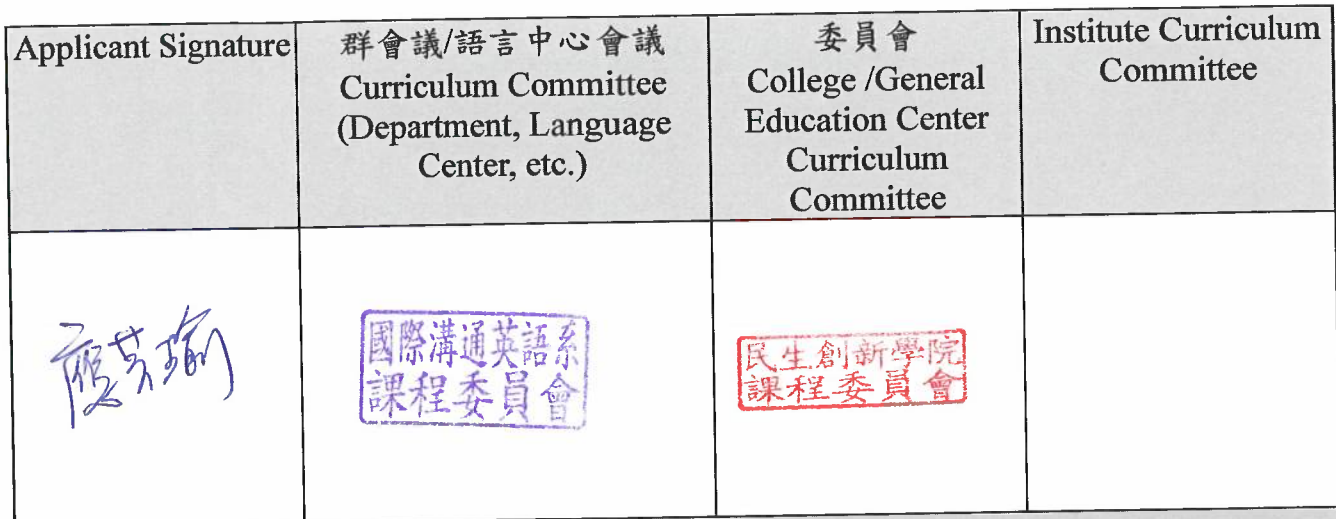 Applicant Signature
群會議/語言中心會議
Curriculum Committee
(Department, Language
Center, etc.)
委員會
College /General
Education Center
Curriculum
Committee
Institute Curriculum
Committee
國際溝通英語系
課程委員會
民生創新學院
課程委員會